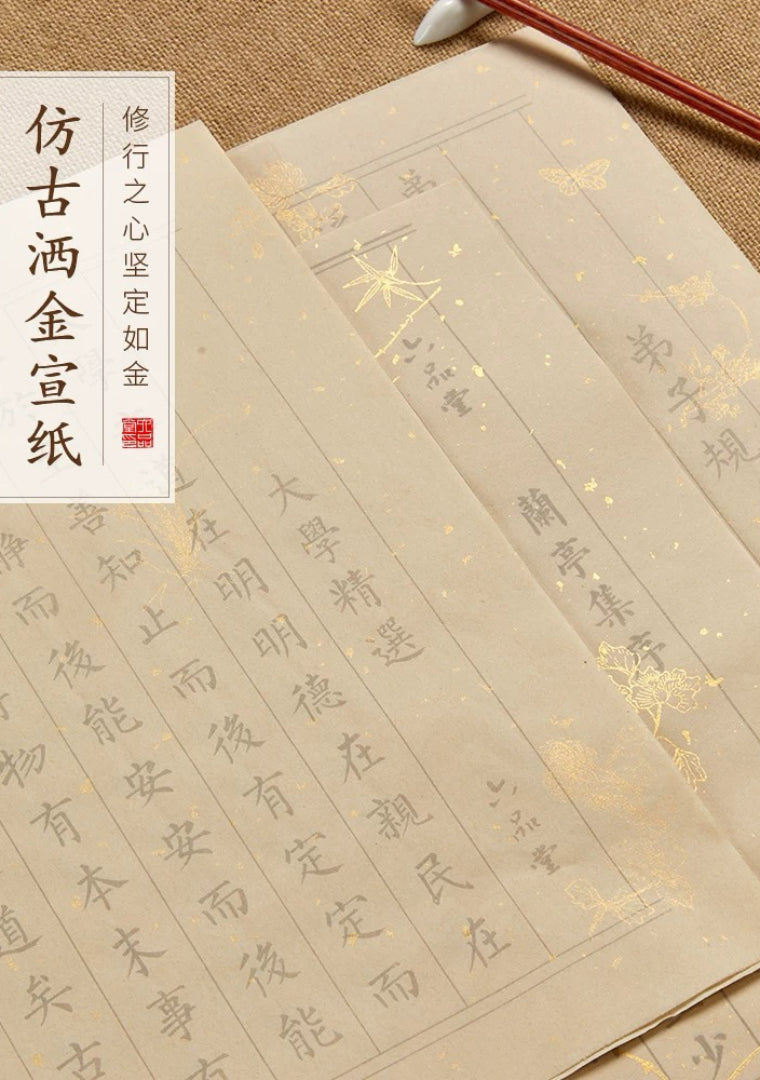 仿古洒金宣纸
修行之心坚定如金
弟子規
六品堂
蘭亭集序
六品堂
大學精選
道在明明德在親民在
善知止而後有定定而
靜而後能安安而後能
物有本末事有
道矣古
少